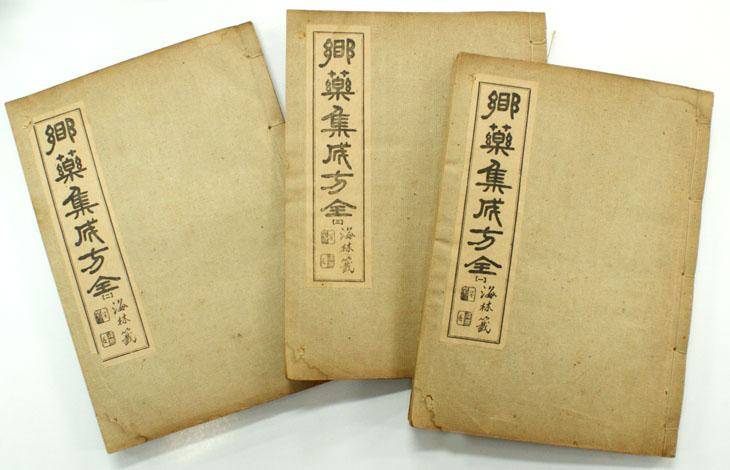 鄕藥集成方全【二】
海林籤
鄕藥集成方全【三】
海林籤
鄕藥集成方全【一】
海林籤